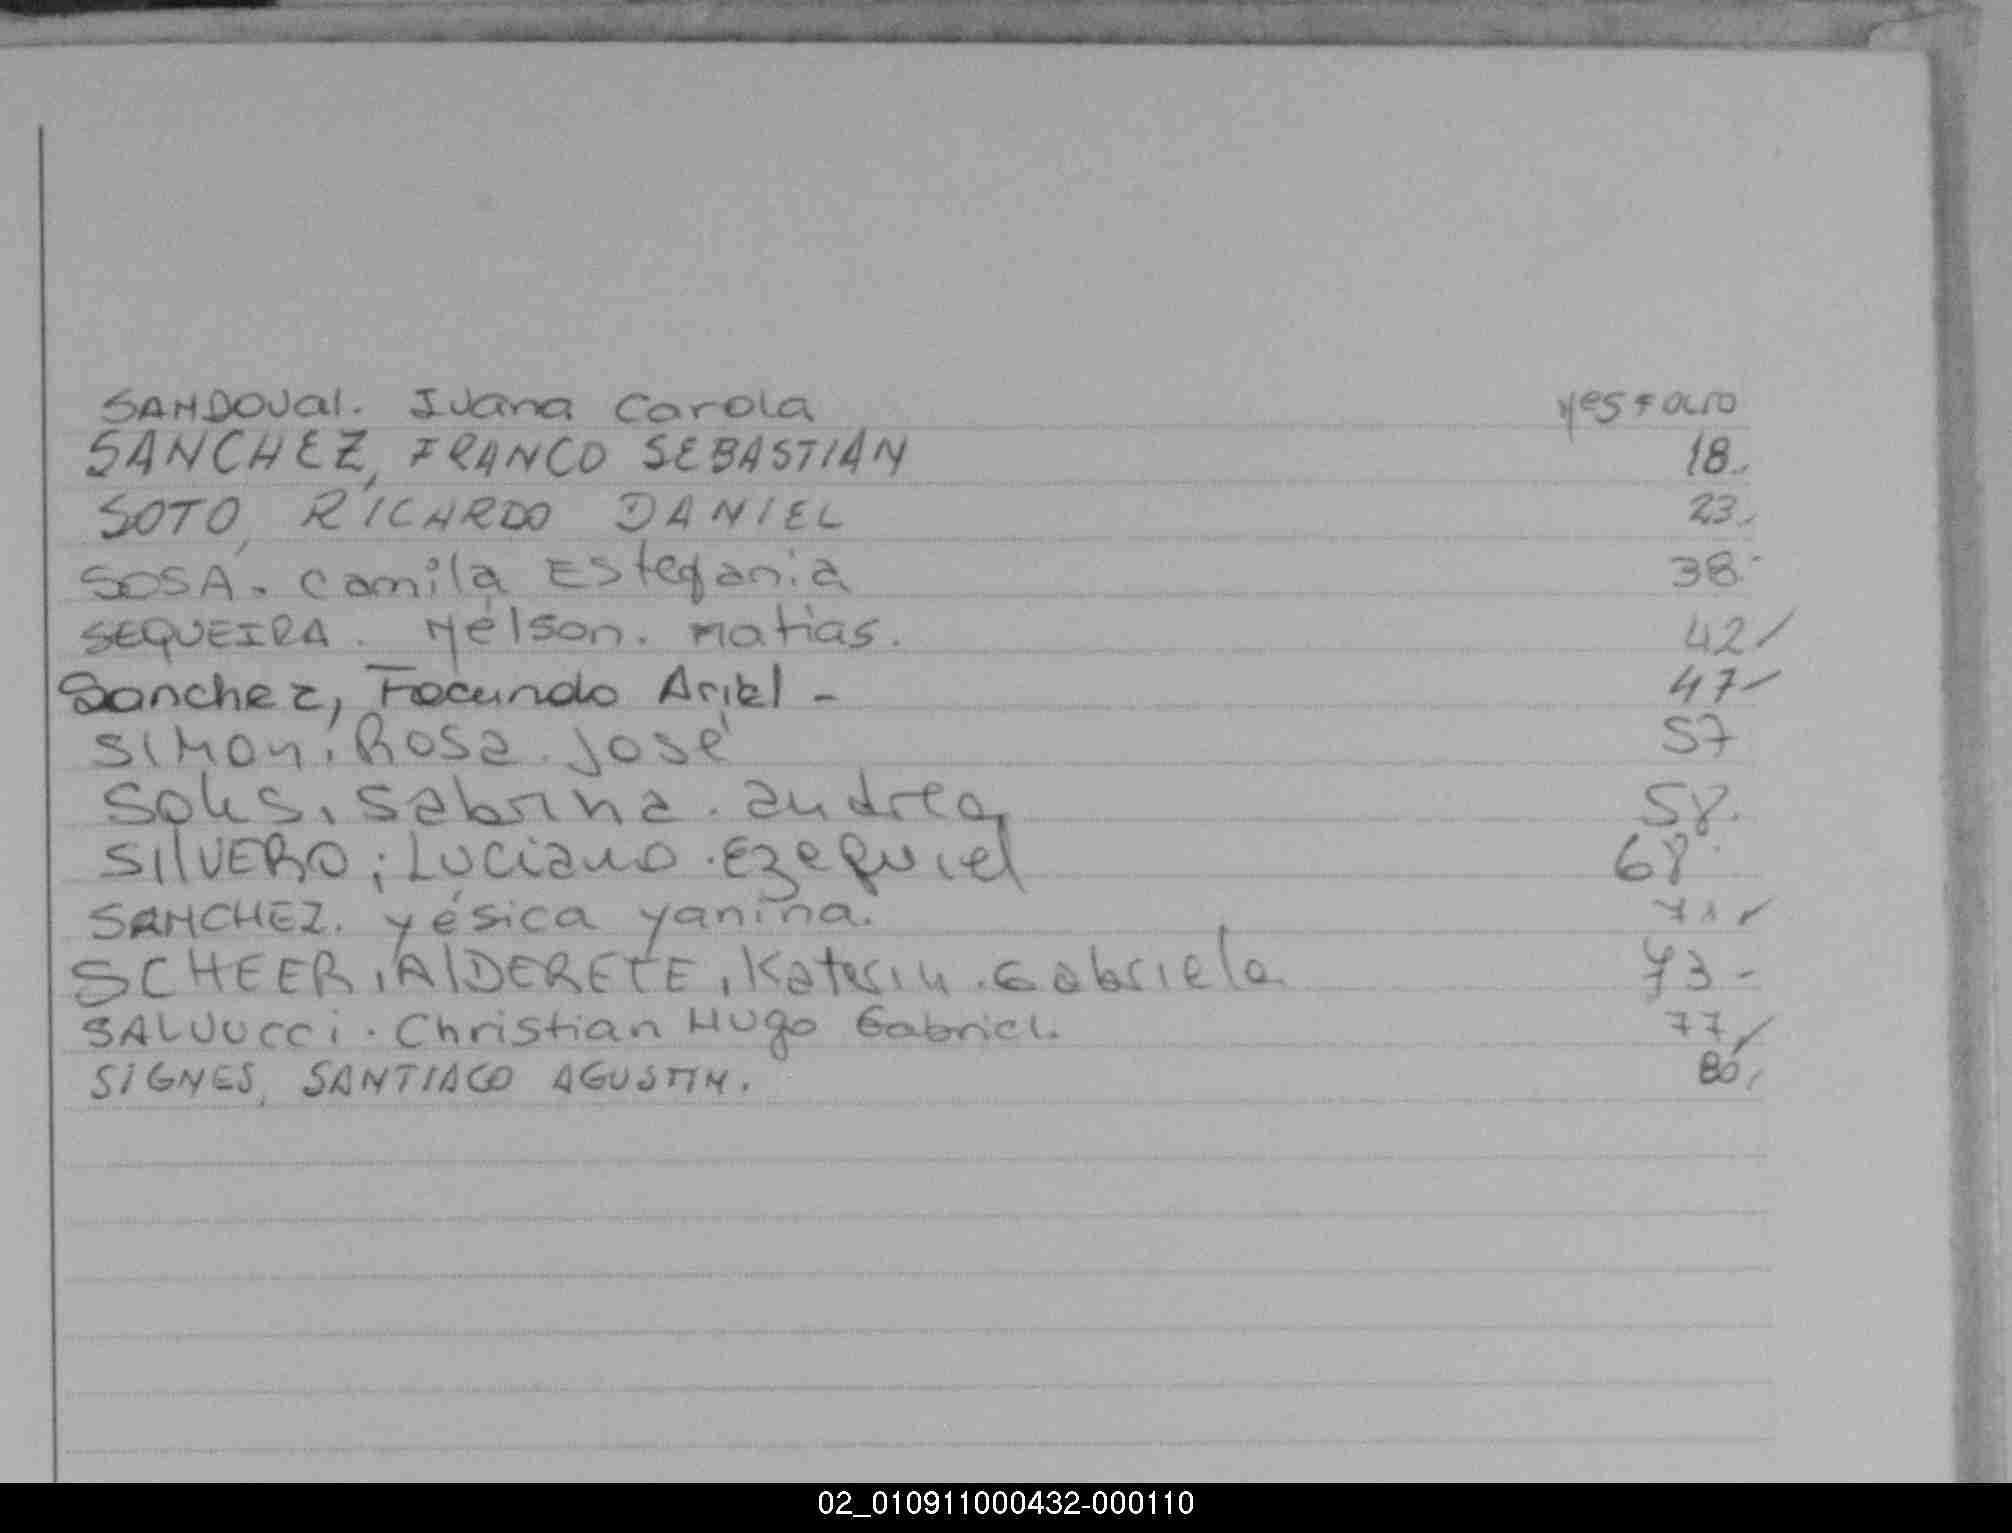 SANDOVal. Ivana Carola
SANCHEZ, FRANCO SEBASTIAN 18.
SOTO, RICARDO DANIEL 23.
SOSA. Camila Estefania 38.-
SEQUEIRA. Nélson. Matias. 42/
Sanchez, Facundo Ariel - 47-
SIMON, Rosa. José 57
Solis, Sabrina. Andrea 58.
SIlVERO; Luciano. Ezequiel 68.
SANCHEZ. yésica yanina. 71/
SCHEER, AlDERETE, Katerin. Gabriela 73-
SALVUCCi. Christian Hugo Gabriel. 77/
SIGNES, SANTIAGO AGUSTIN. 80/
02_010911000432-000110